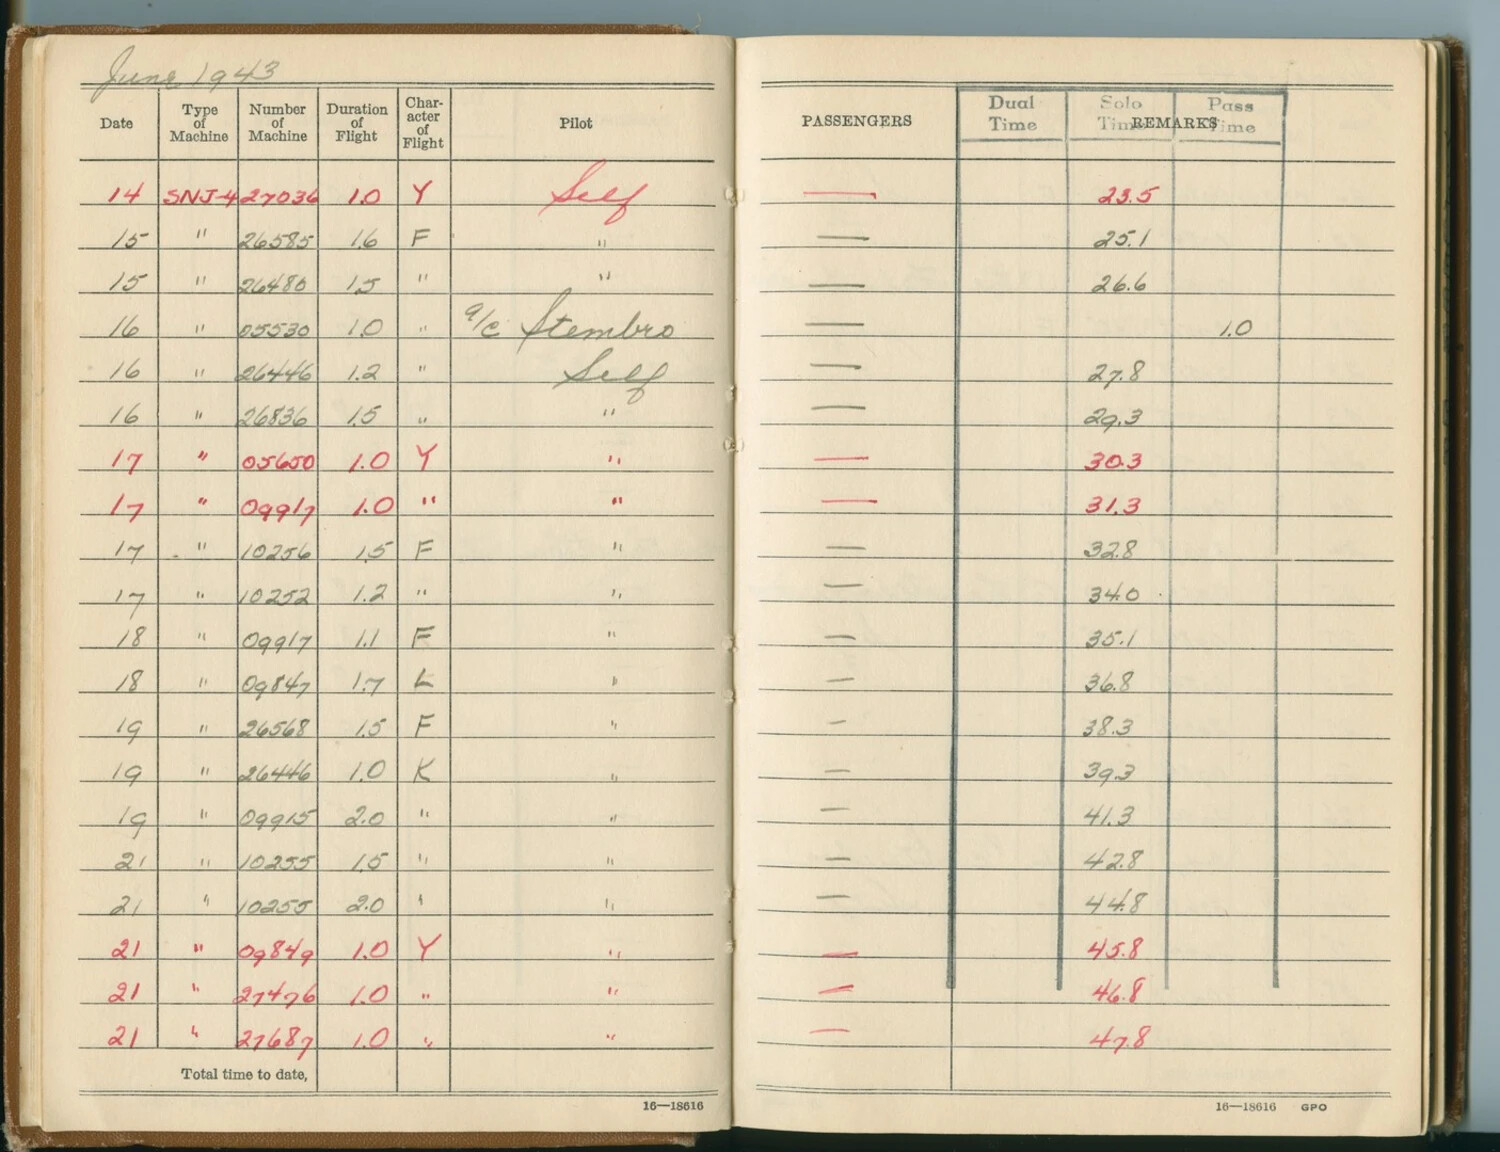 June 1943
Date Type of Machine Number of Machine Duration of Flight Character of Flight Pilot PASSENGERS Dual Time Solo Time Pass Time REMARKS
14 SNJ-4 27036 1.0 Y Self — 23.5
15 " 26585 1.6 F " — 25.1
15 " 26480 1.5 " " — 26.6
16 " 05530 1.0 " a/c Stembro — 1.0
16 " 26446 1.2 " Self — 27.8
16 " 26836 1.5 " " — 29.3
17 " 05650 1.0 Y " — 30.3
17 " 09917 1.0 " " — 31.3
17 " 10256 1.5 F " — 32.8
17 " 10252 1.2 " " — 34.0
18 " 09917 1.1 F " — 35.1
18 " 09847 1.7 L " — 36.8
19 " 26568 1.5 F " — 38.3
19 " 26446 1.0 K " — 39.3
19 " 09915 2.0 " " — 41.3
21 " 10255 1.5 " " — 42.8
21 " 10255 2.0 " " — 44.8
21 " 09849 1.0 Y " — 45.8
21 " 27476 1.0 " " — 46.8
21 " 27687 1.0 " " — 47.8
Total time to date,
16—18616
16—18616 GPO